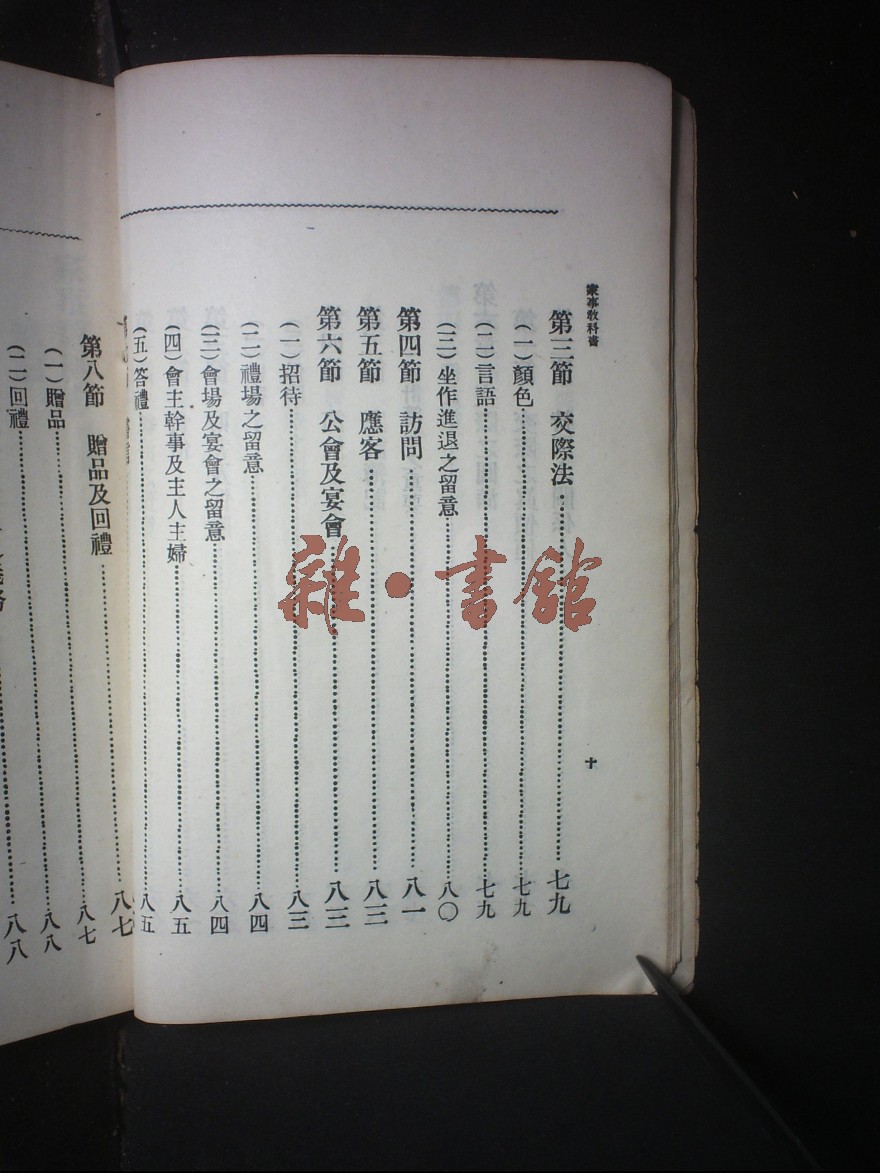 家事教科書
十
第三節 交際法 七九
(一)顏色 七九
(二)言語 七九
(三)坐作進退之留意 八〇
第四節 訪問 八一
第五節 應客 八二
第六節 公會及宴會 八三
(一)招待 八三
(二)禮場之留意 八四
(三)會場及宴會之留意 八四
(四)會主幹事及主人主婦 八五
(五)答禮 八五
八七
第八節 贈品及回禮 八七
(一)贈品 八八
(二)回禮 八八
雜·書館